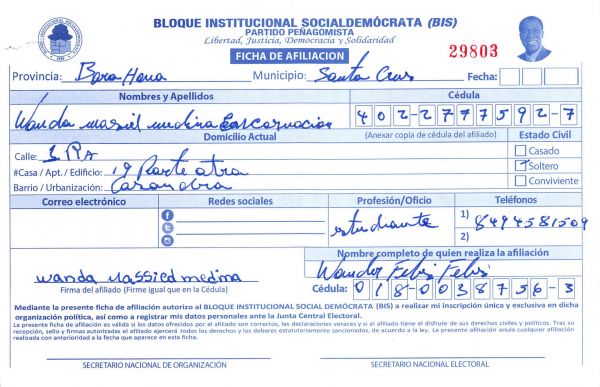 BLOQUE INSTITUCIONAL SOCIALDEMÓCRATA (BIS)
PARTIDO PEÑAGOMISTA
Libertad, Justicia, Democracia y Solidaridad
FICHA DE AFILIACION
29803
Provincia: Bara Hona Municipio: Santa Cruz Fecha:
Nombres y Apellidos Cédula
Wanda massiel medina Encarnacion 402-2777592-7
Domicilio Actual (Anexar copia de cédula del afiliado) Estado Civil
Calle: 1 RA
Casado
#Casa / Apt. / Edificio: 19 Parte atra
Soltero
Barrio / Urbanización: Casandra
Conviviente
Correo electrónico Redes sociales Profesión/Oficio Teléfonos
estudiante 1) 8494581509
2)
Nombre completo de quien realiza la afiliación
Wander Felis Felis
wanda massiel medina
Firma del afiliado (Firme igual que en la Cédula) Cédula: 018-0038756-3
Mediante la presente ficha de afiliación autorizo al BLOQUE INSTITUCIONAL SOCIAL DEMÓCRATA (BIS) a realizar mi inscripción única y exclusiva en dicha
organización política, así como a registrar mis datos personales ante la Junta Central Electoral.
La presente ficha de afiliación es válida si los datos ofrecidos por el afiliado son correctos, las declaraciones veraces y si el afiliado tiene el disfrute de sus derechos civiles y políticos. Tras su
recepción, sello y firmas autorizadas el afiliado ejercerá todos los derechos y los deberes estatutariamente sancionados, de acuerdo a la ley. La presente afiliación anula cualquier afiliación
realizada con anterioridad a la fecha que aparece en esta ficha.
SECRETARIO NACIONAL DE ORGANIZACIÓN SECRETARIO NACIONAL ELECTORAL